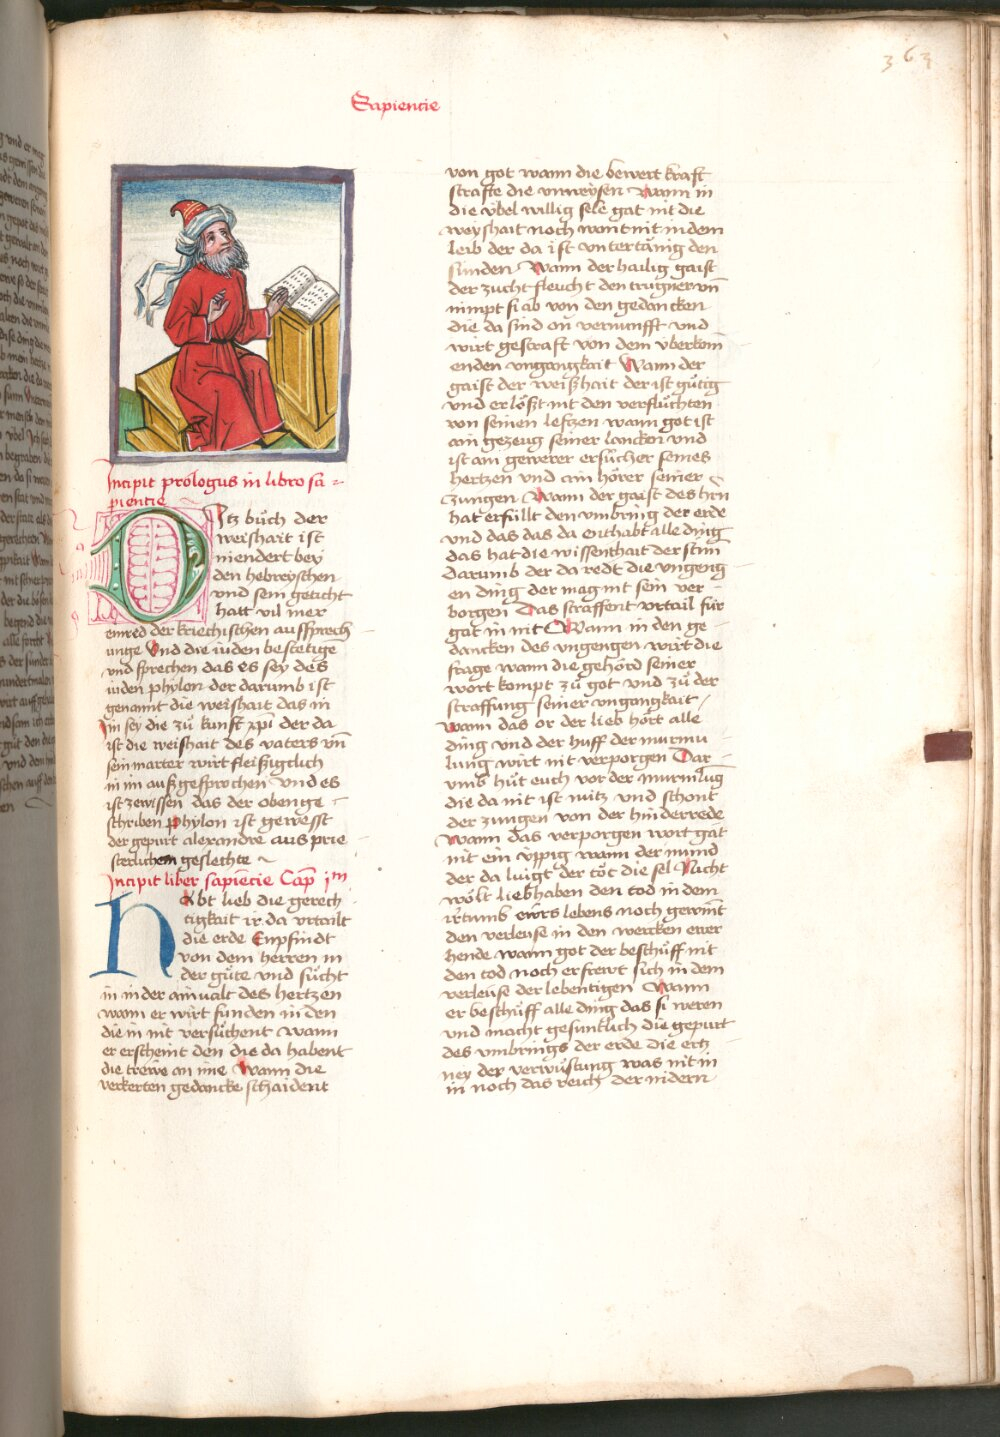 363
Sapientie
Incipit prologus in libro sa=
pientie
Ditz bůch der
weishait ist
niendert bey
den hebreyschen
und sein geticht
hatt vil mer
emred der kriechischen auffsprech
unge Vnd die iuden bestetige
vnd sprechen das es sey des
iuden phylon der darumb ist
genannt die weishait das in
im sey die zů kunft xp̄i der da
ist die weishait des vaters vn̄
sein marter wirt fleißigclich
in im außgesprochen Vnd es
ist zewissen das der obenge=
schriben phylon ist gewesst
der gepurt alexandre aus prie
sterlichem geslechte
Incipit liber sapiēcie Cap̄ jm
Habt lieb die gerech
tigkait ir da vrtailt
die erde Empfindt
von dem herren in
der gůte vnd sůcht
in in der ainualt des hertzen
wann er wirt funden in den
die in nit versůchent wann
er erscheint den die da habent
die trewe an ime Wann die
verkerten gedancke schaident
von got wann die bewert kraft
strafte die vnweysen Wann in
die v̈bel willig sele gat nit die
weyshait noch wont nit in dem
leib der da ist vntertänig den
sünden Wann der hailig gaist
der zucht fleucht den trugner vn̄
nimpt si ab von den gedancken
die da sind on vernunfft vnd
wirt gestraft von dem vberkom
enden vngangkait Wann der
gaist der weißhait der ist gůtig
vnd erlößt nit den verflůchten
von seinen leftzen wann got ist
ain gezeug seiner lancken vnd
ist ain gewerer ersůcher seines
hertzen vnd ain hörer seiner
zungen Wann der gaist des hrn
hat erfüllt den vmbring der erde
vnd das das da enthabt alle ding
das hat die wissenthait der stim
darumb der da redt die vngeng
en ding der mag nit sein ver
borgen Das straffent vrtail für
gat in nit Wann in den ge=
dancken des vngengen wirt die
frage wann die gehörd seiner
wort kompt zů got vnd zů der
straffung seiner vngangkait
wann das or der lieb hört alle
ding vnd der huff der murmu
lung wirt nit verporgen Dar=
vmb hůt euch vor der murmlug
die da nit ist nütz vnd schont
der zungen von der hinderrede
Wann das verporgen wort gat
nit ein v̈ppig wann der mund
der da luigt der töt die sel Nicht
wölt liebhaben den tod in dem
irrtumb ewrs lebens noch gewint
den verleuse in den wercken ewer
hende wann got der beschůff nit
den tod noch erfrewt sich in dem
verleuse der lebentigen Wann
er beschůff alle ding das si weren
vnd macht gesuntlich die gepurt
des vmbrings der erde die ertz
ney der verwüstung was nit in
in noch das reich der nidern